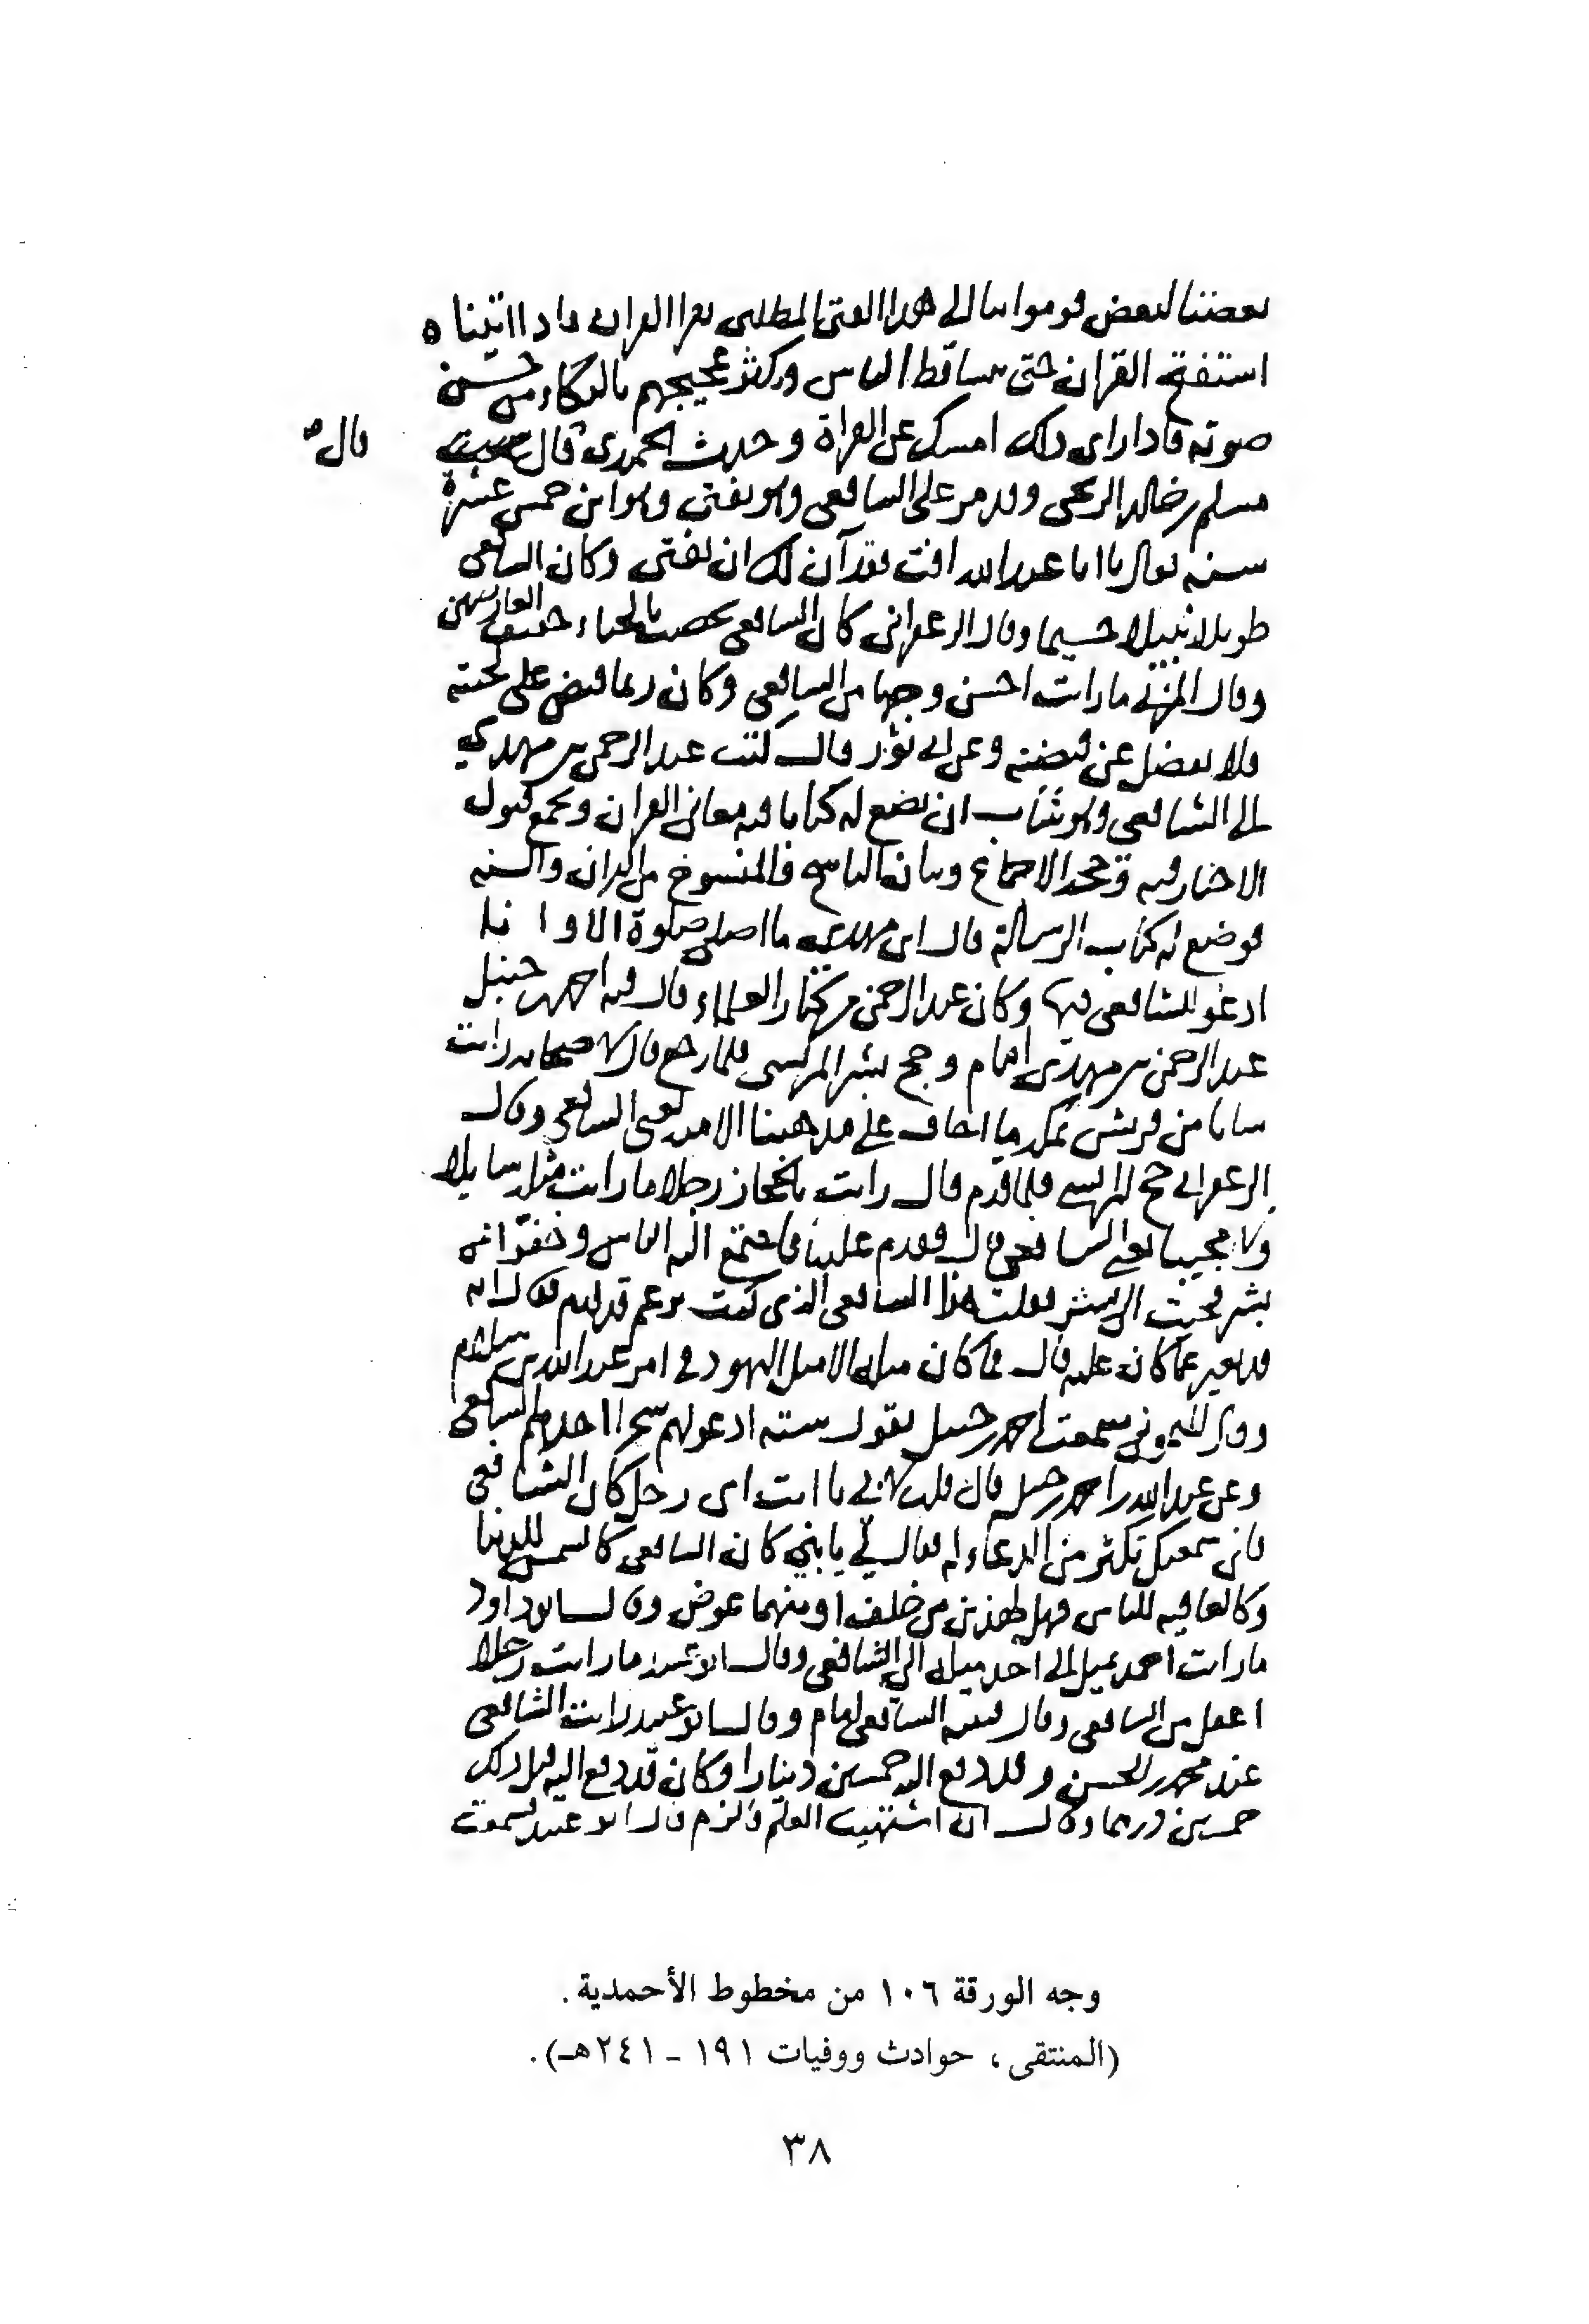 بعضنا لبعض قوموا بنا الى هذا الفتى المطلبى يقرا القران فاذا اتيناه
استفتح القران حتى يتساقط الناس وكثر عجيجهم بالبكاء من حسن
صوته فاذا راى ذلك امسك عن القراة وحدث الحميدى قال
قال
مسلم بن خالد الزنجى ومر على الشافعى وهو يفتى وهو ابن خمس عشرة
سنة فقال يا ابا عبد الله افت فقد آن لك ان تفتى وكان الشافعى
طويلا نبيلا جسيما وقال الزعفرانى كان الشافعى يخضب بالحناء خفيف العارضين
وقال المزنى ما رايت احسن وجها من الشافعى وكان ربما قبض على لحيته
فلا يفضل عن قبضته وعن ابى ثور قال كتب عبد الرحمن بن مهدى
الى الشافعى وهو شاب ان يضع له كتابا فيه معانى القران ويجمع قبول
الاخبار فيه وحجة الاجماع وبيان الناسخ والمنسوخ من القران والسنة
فوضع له كتاب الرسالة قال ابن مهدى ما اصلى صلوة الا وانا
ادعو للشافعى فيها وكان عبد الرحمن من كبار العلماء قال فيه احمد بن حنبل
عبد الرحمن بن مهدى امام وحج بشر المريسى فلما رجع قال لاصحابه رايت
شابا من قريش بمكة ما اخاف على مذهبنا الا منه يعنى الشافعى وقال
الزعفرانى حج المريسى فلما قدم قال رايت بالحجاز رجلا ما رايت مثله سايلا
ولا مجيبا يعنى الشافعى قال فقدم علينا فاجتمع اليه الناس وخفوا عن
بشر فجيت الى بشر فقلت هذا الشافعى الذى كنت تزعم قد قدم قال انه
قد تغير عما كان عليه قال فما كان مثله الا مثل اليهود فى امر عبد الله بن سلام
وقال الميمونى سمعت احمد بن حنبل يقول ستة ادعو لهم سحرا احدهم الشافعى
وعن عبد الله بن احمد بن حنبل قال قلت لابى يا ابت اى رجل كان الشافعى
فانى سمعتك تكثر من الدعاء له فقال لى يا بنى كان الشافعى كالشمس للدنيا
وكالعافية للناس فهل لهذين من خلف او منهما عوض وقال ابو داود
ما رايت احمد يميل الى احد ميله الى الشافعى وقال ابو عبيد ما رايت رجلا
اعقل من الشافعى وقال قتيبة الشافعى امام وقال ابو عبيد رايت الشافعى
عند محمد بن الحسن وقد دفع اليه خمسين دينارا وكان قد دفع اليه قبل ذلك
خمسين درهما وقال ان اشتهيت العلم فالزم قال ابو عبيد فسمعت
وجه الورقة ١٠٦ من مخطوط الأحمدية.
(المنتقى، حوادث ووفيات ١٩١ - ٢٤١هـ).
٣٨